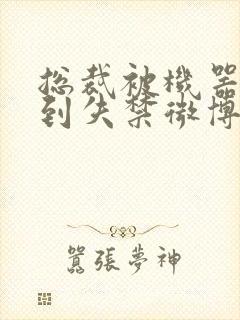 总裁被機器
到失禁微博
囂張夢神